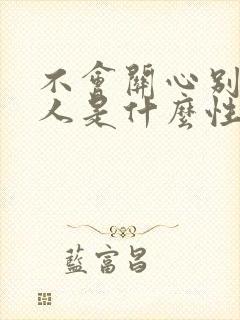 不會關心別
人是什麼性
藍富昌